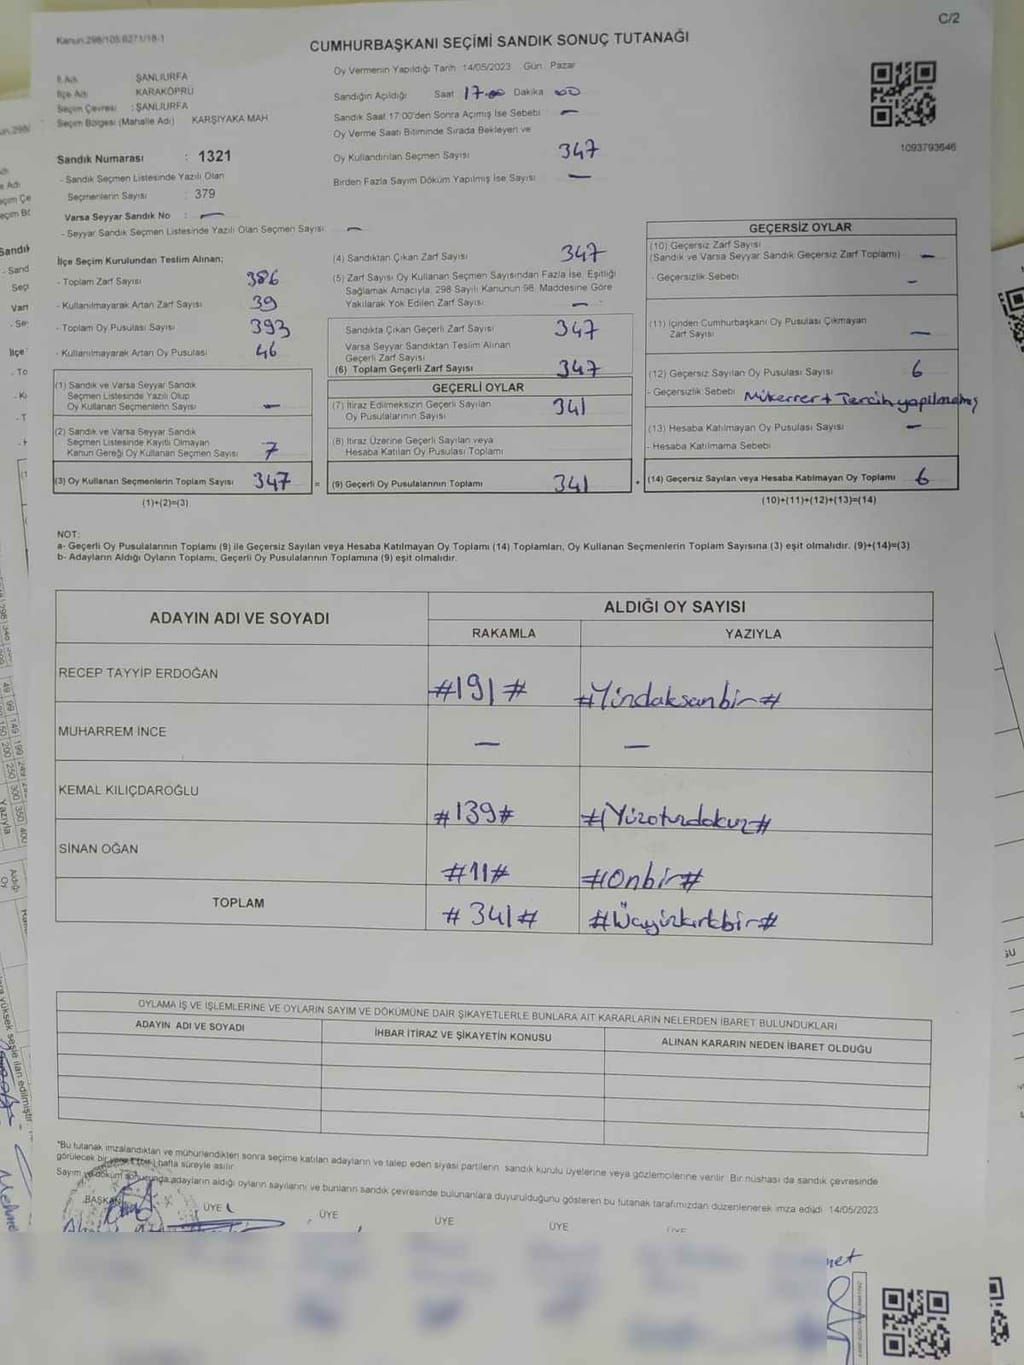 C/2
Kanun:298/105.6271/18-1
CUMHURBAŞKANI SEÇİMİ SANDIK SONUÇ TUTANAĞI
İl Adı ŞANLIURFA
İlçe Adı KARAKÖPRÜ
Seçim Çevresi : ŞANLIURFA
Seçim Bölgesi (Mahalle Adı) KARŞIYAKA MAH
Sandık Numarası : 1321
- Sandık Seçmen Listesinde Yazılı Olan
Seçmenlerin Sayısı : 379
Varsa Seyyar Sandık No : —
- Seyyar Sandık Seçmen Listesinde Yazılı Olan Seçmen Sayısı —
Oy Vermenin Yapıldığı Tarih 14/05/2023 Gün Pazar
Sandığın Açıldığı Saat 17.00 Dakika 00
Sandık Saat 17:00'den Sonra Açımış İse Sebebi —
Oy Verme Saati Bitiminde Sırada Bekleyen ve
Oy Kullandırılan Seçmen Sayısı 347
Birden Fazla Sayım Döküm Yapılmış İse Sayısı —
1093793646
İlçe Seçim Kurulundan Teslim Alınan;
- Toplam Zarf Sayısı 386
- Kullanılmayarak Artan Zarf Sayısı 39
- Toplam Oy Pusulası Sayısı 393
- Kullanılmayarak Artan Oy Pusulası 46
(1) Sandık ve Varsa Seyyar Sandık
Seçmen Listesinde Yazılı Olup
Oy Kullanan Seçmenlerin Sayısı —
(2) Sandık ve Varsa Seyyar Sandık
Seçmen Listesinde Kayıtlı Olmayan
Kanun Gereği Oy Kullanan Seçmen Sayısı 7
(3) Oy Kullanan Seçmenlerin Toplam Sayısı 347
(1)+(2)=(3)
(4) Sandıktan Çıkan Zarf Sayısı 347
(5) Zarf Sayısı Oy Kullanan Seçmen Sayısından Fazla İse, Eşitliği
Sağlamak Amacıyla, 298 Sayılı Kanunun 98. Maddesine Göre
Yakılarak Yok Edilen Zarf Sayısı —
Sandıkta Çıkan Geçerli Zarf Sayısı 347
Varsa Seyyar Sandıktan Teslim Alınan
Geçerli Zarf Sayısı
(6) Toplam Geçerli Zarf Sayısı 347
GEÇERLİ OYLAR
(7) İtiraz Edilmeksizin Geçerli Sayılan
Oy Pusulalarının Sayısı 341
(8) İtiraz Üzerine Geçerli Sayılan veya
Hesaba Katılan Oy Pusulası Toplamı
= (9) Geçerli Oy Pusulalarının Toplamı 341
GEÇERSİZ OYLAR
(10) Geçersiz Zarf Sayısı
(Sandık ve Varsa Seyyar Sandık Geçersiz Zarf Toplamı) —
- Geçersizlik Sebebi —
(11) İçinden Cumhurbaşkanı Oy Pusulası Çıkmayan
Zarf Sayısı —
(12) Geçersiz Sayılan Oy Pusulası Sayısı 6
- Geçersizlik Sebebi Mükerrer + Tercih yapılmamış
(13) Hesaba Katılmayan Oy Pusulası Sayısı —
- Hesaba Katılmama Sebebi
+ (14) Geçersiz Sayılan veya Hesaba Katılmayan Oy Toplamı 6
(10)+(11)+(12)+(13)=(14)
NOT:
a- Geçerli Oy Pusulalarının Toplamı (9) ile Geçersiz Sayılan veya Hesaba Katılmayan Oy Toplamı (14) Toplamları, Oy Kullanan Seçmenlerin Toplam Sayısına (3) eşit olmalıdır. (9)+(14)=(3)
b- Adayların Aldığı Oyların Toplamı, Geçerli Oy Pusulalarının Toplamına (9) eşit olmalıdır.
ADAYIN ADI VE SOYADI ALDIĞI OY SAYISI
RAKAMLA YAZIYLA
RECEP TAYYİP ERDOĞAN #191# #Yüzdoksanbir#
MUHARREM İNCE — —
KEMAL KILIÇDAROĞLU #139# #Yüzotuzdokuz#
SİNAN OĞAN #11# #Onbir#
TOPLAM #341# #Üçyüzkırkbir#
OYLAMA İŞ VE İŞLEMLERİNE VE OYLARIN SAYIM VE DÖKÜMÜNE DAİR ŞİKAYETLERLE BUNLARA AİT KARARLARIN NELERDEN İBARET BULUNDUKLARI
ADAYIN ADI VE SOYADI İHBAR İTİRAZ VE ŞİKAYETİN KONUSU ALINAN KARARIN NEDEN İBARET OLDUĞU
*Bu tutanak imzalandıktan ve mühürlendikten sonra seçime katılan adayların ve talep eden siyasi partilerin sandık kurulu üyelerine veya gözlemcilerine verilir. Bir nüshası da sandık çevresinde
görülecek bir hafta süreyle asılır
Sayım ve döküm sonucunda adayların aldığı oyların sayılarını ve bunların sandık çevresinde bulunanlara duyurulduğunu gösteren bu tutanak tarafımızdan düzenlenerek imza edildi 14/05/2023
BAŞKAN ÜYE ÜYE ÜYE ÜYE ÜYE